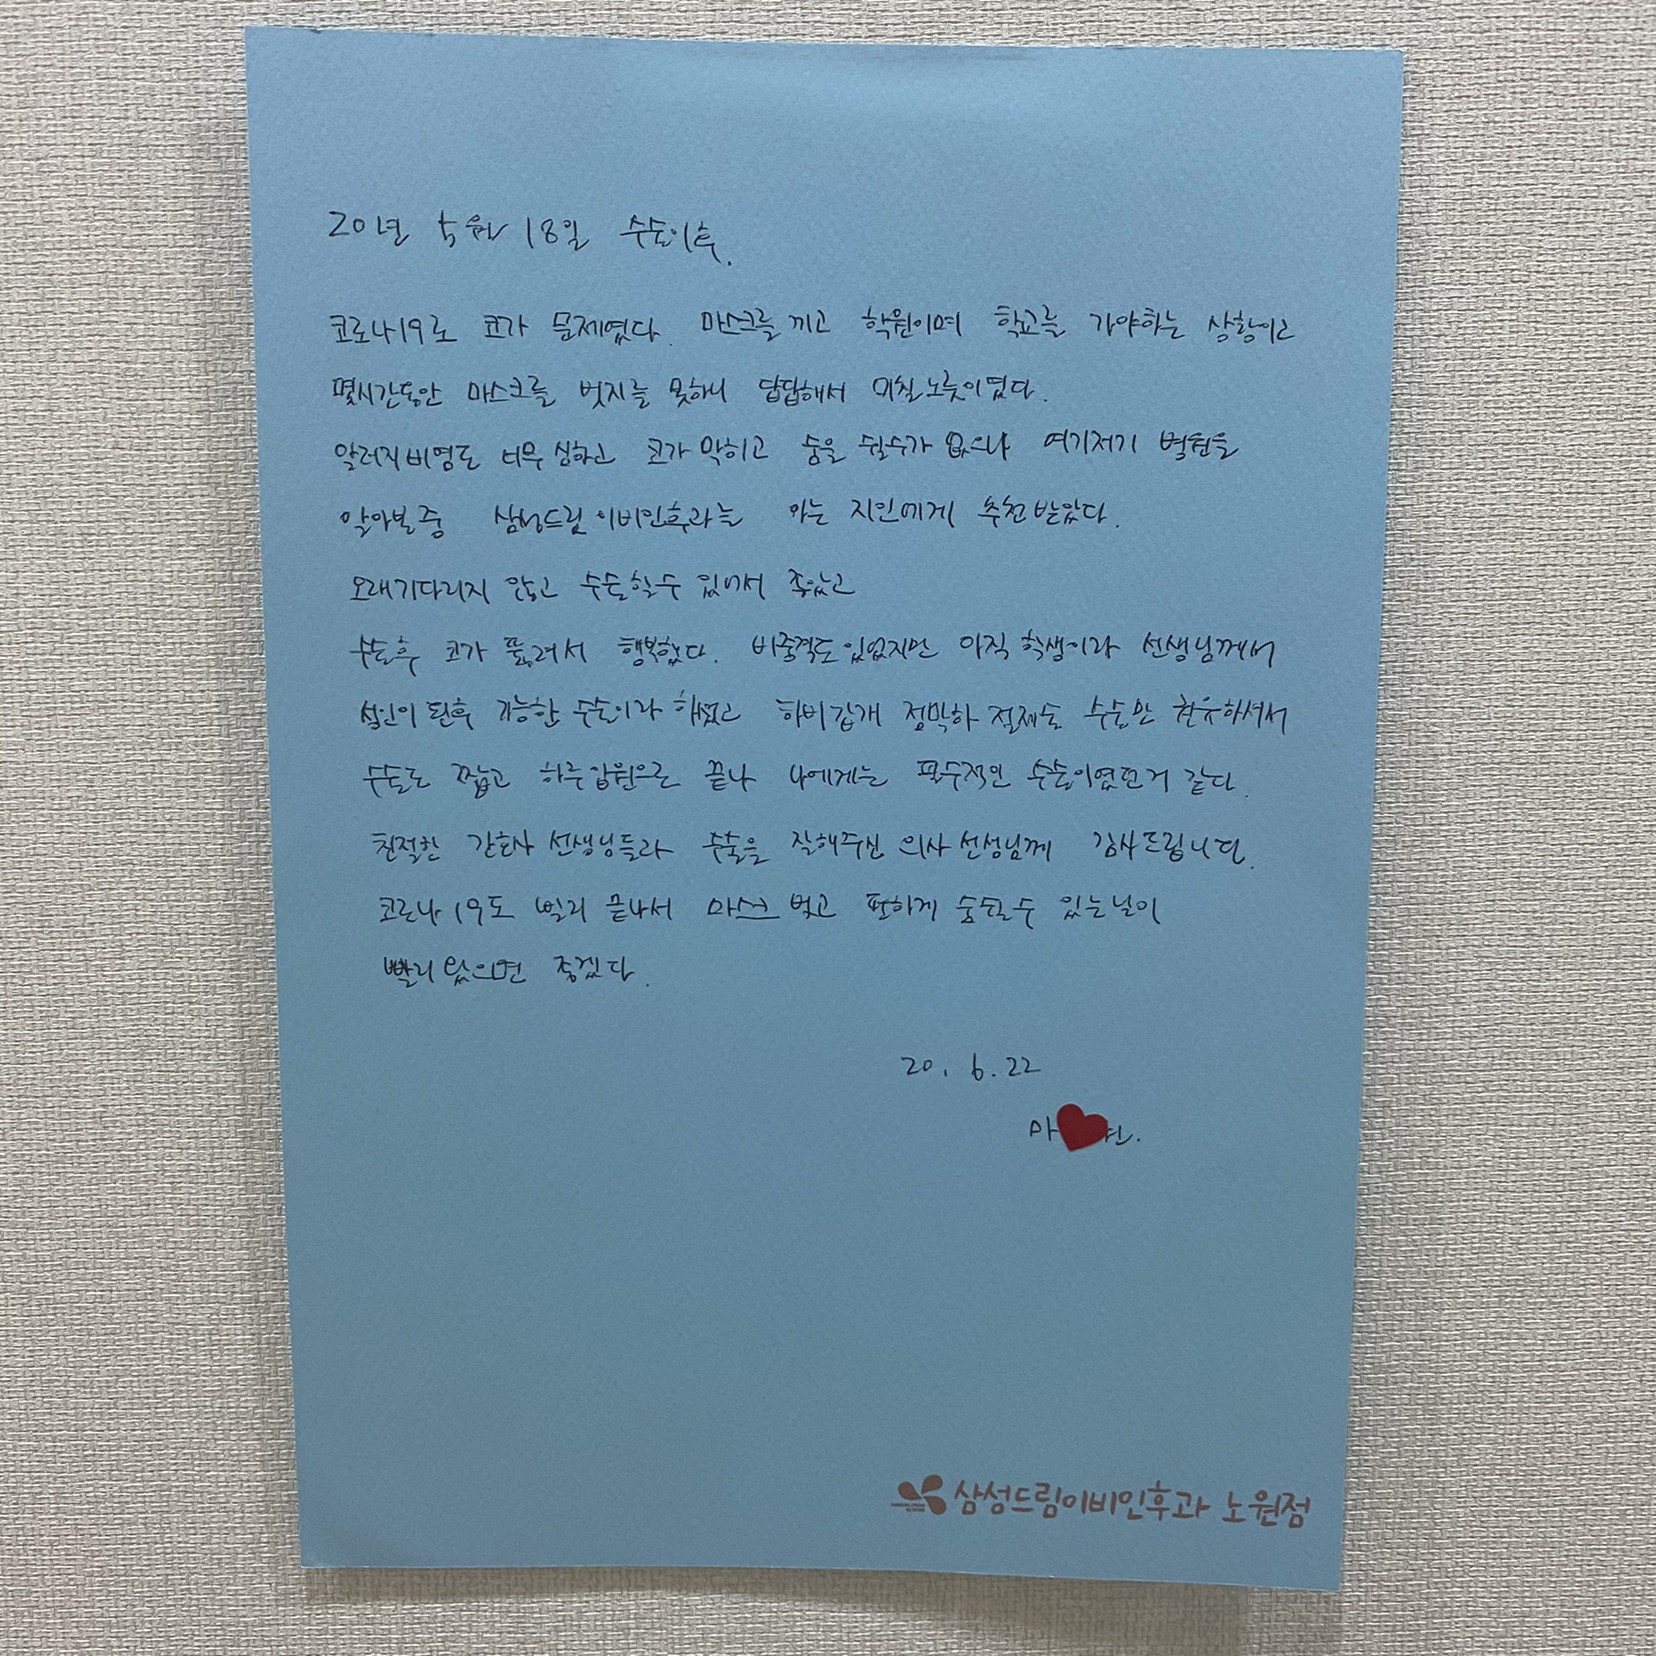 20년 5월 18일 수술이후.
코로나19로 코가 문제였다. 마스크를 끼고 학원이며 학교를 가야하는 상황이고
몇시간동안 마스크를 벗지를 못하니 답답해서 미칠노릇이였다.
알러지비염도 너무 심하고 코가 막히고 숨을 쉴수가 없으니 여기저기 병원을
알아보던중 삼성드림이비인후과를 아는 지인에게 추천받았다.
오래기다리지 않고 수술할수 있어서 좋았고
수술후 코가 뚫려서 행복했다. 비중격도있었지만 아직 학생이라 선생님께서
성인이 된후 가능한 수술이라 하셨고 하비갑개 점막하 절제술 수술만 권유하셔서
수술도 짧고 하루입원으로 끝나 나에게는 필수적인 수술이였던거 같다.
친절한 간호사 선생님들과 수술을 잘해주신 의사 선생님께 감사드립니다.
코로나19도 빨리 끝나서 마스크 벗고 편하게 숨쉴수 있는날이
빨리왔으면 좋겠다.
20. 6. 22
마
삼성드림이비인후과 노원점